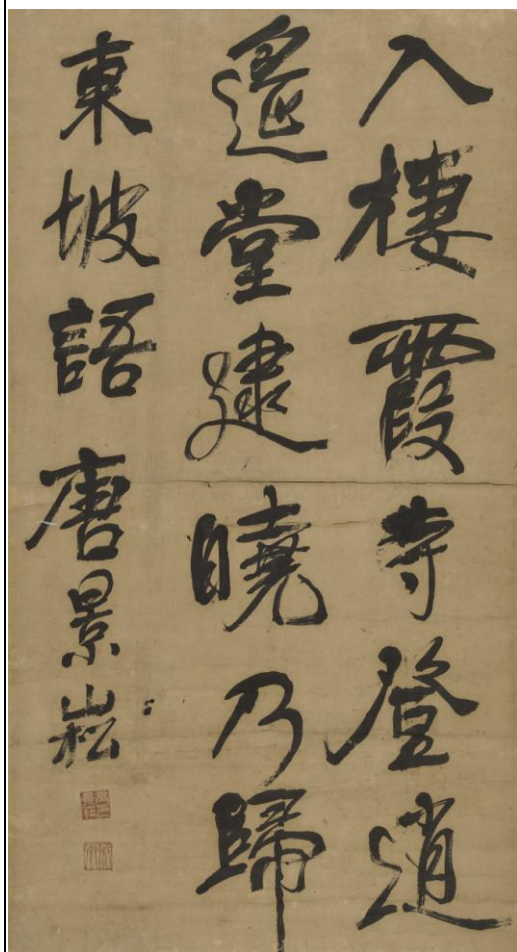 入棲霞寺登逍
遙堂逮曉乃歸
東坡語 唐景崧